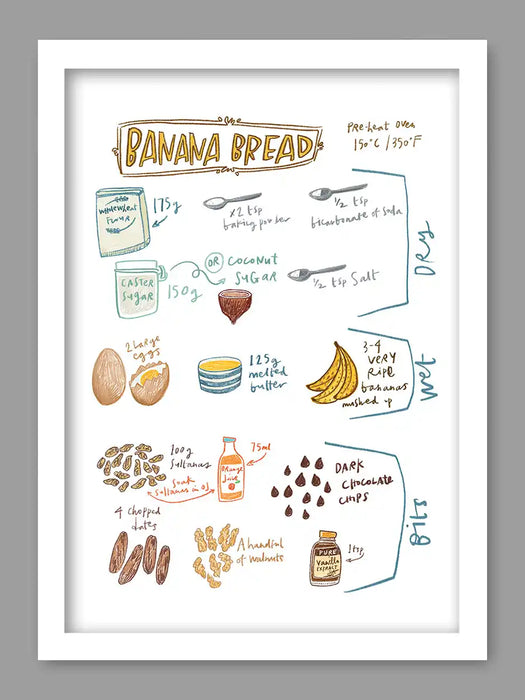 BANANA BREAD
Pre-heat oven
150°C / 350°F
wholewheat
FLOUR
175g
x2 tsp
baking powder
1/2 tsp
bicarbonate of soda
CASTER
SUGAR
150g
OR COCONUT
SUGAR
1/2 tsp Salt
DRY
2 large
eggs
125g
melted
butter
3-4
VERY
RIPE
bananas
mushed up
Wet
100g
Sultanas
Soak
Sultanas in OJ
ORANGE
Juice
75ml
DARK
CHOCOLATE
CHIPS
4 chopped
dates
A handful
of walnuts
PURE
Vanilla
EXTRACT
1 tsp
Bits